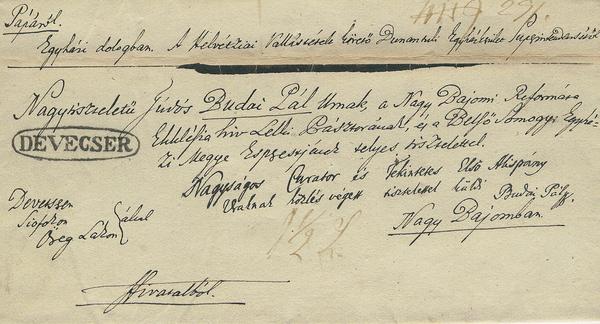 Pápáról.
Egyházi dologban. A Helvétziai Vallástétele követő Dunántuli Egyházkerület Superintendensétől
Nagytiszteletű Tudós Budai Pál Urnak, a Nagy Bajomi Reformáta
Ekklésia hiv Lelki Pásztorának, és a Belső Somogyi Egyhá-
zi Megye Esperesjének tellyes tisztelettel.
DEVECSER
Nagyságos Curator és Tekintetes Első Alispány
Uraknak közlés végett tisztelettel küldi Budai Pál
Devecser
Siófokon
Öreg Lakon által
Nagy Bajomban.
Hivatalból.